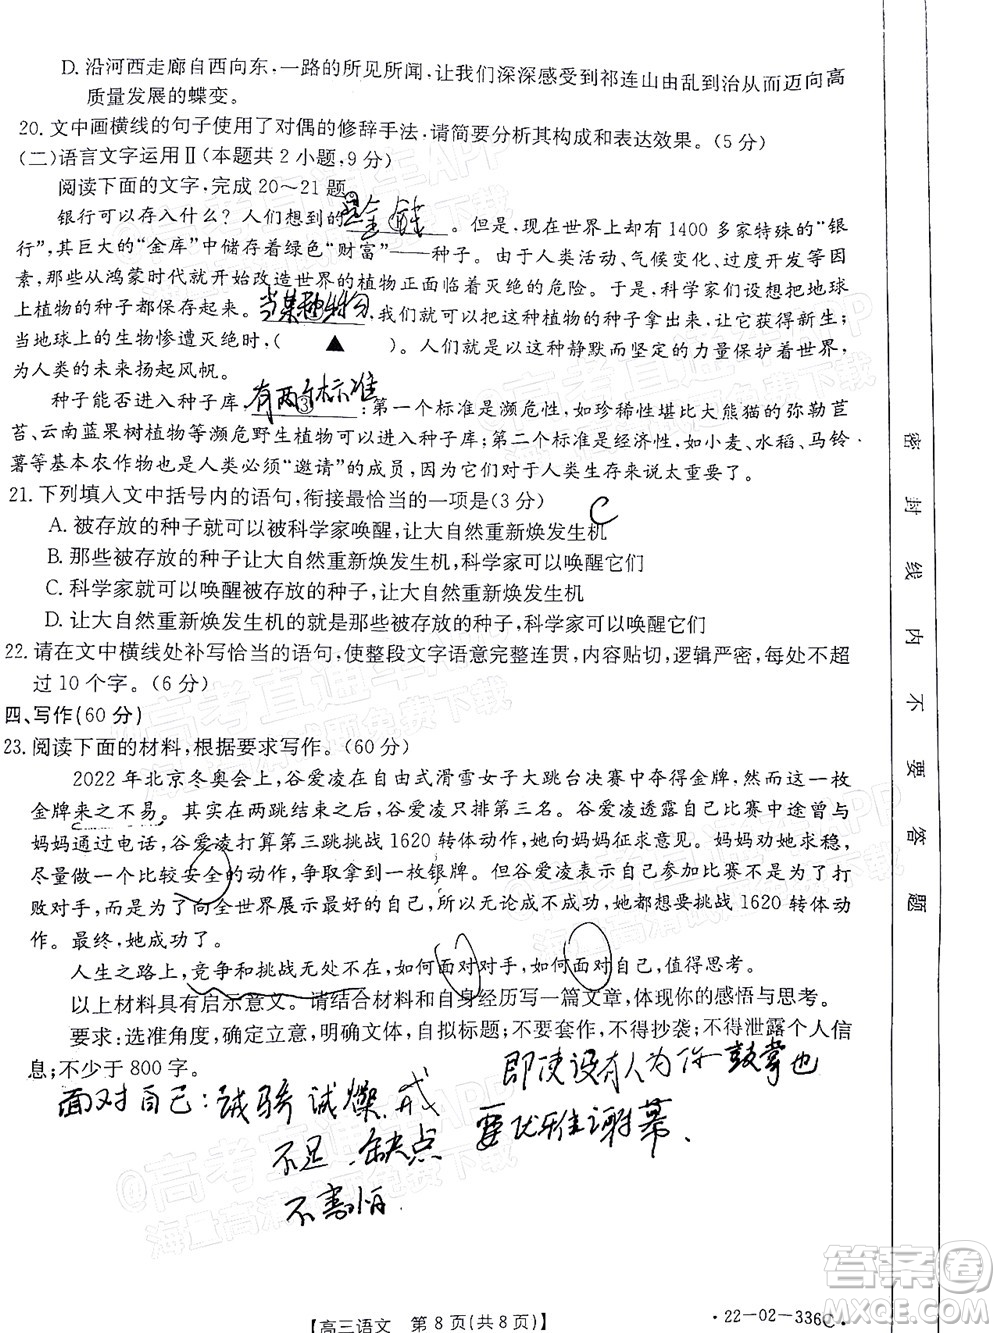 D. 沿河西走廊自西向东,一路的所见所闻,让我们深深感受到祁连山由乱到治从而迈向高
质量发展的蝶变。
20. 文中画横线的句子使用了对偶的修辞手法,请简要分析其构成和表达效果。(5 分)
(二)语言文字运用Ⅱ(本题共 2 小题,9 分)
阅读下面的文字,完成 20～21 题。
银行可以存入什么? 人们想到的是金钱。但是,现在世界上却有 1400 多家特殊的“银
行”,其巨大的“金库”中储存着绿色“财富”——种子。由于人类活动、气候变化、过度开发等因
素,那些从鸿蒙时代就开始改造世界的植物正面临着灭绝的危险。于是,科学家们把地球
上植物的种子都保存起来。当某种物,我们就可以把这种植物的种子拿出来,获得新生;
当地球上的生物惨遭灭绝时,( ▲ )。人们用这种静默而坚定的力量推搡着世界,
为人类的未来扬起风帆。
种子能否进入种子库,有两个标准③:第一个标准是濒危性,如珍稀性堪比大熊猫的弥勒苣
苔、云南蓝果树植物等濒危野生植物都可以进入种子库;第二个标准是经济性,如小麦、水稻、马铃
薯等基本农作物也是人类必须“邀请”的成员,因它们对于人类生存来说太重要了。
21. 下列填入文中括号内的语句,衔接最恰当的一项是(3 分) C
A. 被存放的种子就可以被科学家唤醒,让大自然重新焕发生机
B. 那些被存放的种子让大自然焕发生机,科学家就可以唤醒它们
C. 科学家就可以唤醒被存放的种子,让大自然重新焕发生机
D. 让大自然重新焕发生机的被存放的种子,科学家就可以唤醒它们
22. 请在文中横线处补写恰当的语句,使整段文字语意完整连贯,内容贴切,逻辑严密,每处不超
过 10 个字。(6 分)
四、写作(60 分)
23. 阅读下面的材料,根据要求写作。(60 分)
2022 年北京冬奥会上,谷爱凌在自由式滑雪女子大跳台决赛中夺得金牌,这一枚
金牌来之不易。其实在两跳结束之后,谷爱凌只排第三名。谷爱凌透露自己比赛中途曾与
妈妈通过电话,谷爱凌打算第三跳挑战 1620 转体动作,她向妈妈征求意见。妈妈劝她求稳,
尽量做一个比较安全的动作,争取拿到一枚银牌。但谷爱凌表示自己参加比赛不是为了打
败对手,而是为了向全世界展示最好的自己,所以无论成不成功,她都想挑战 1620 转体动
作。最终,她成功了。
人生之路上,竞争和挑战无处不在,如何面对对手,如何面对自己,值得思考。
以上材料具有启示意义。请结合材料和自身经历写一篇文章,体现你的感悟与思考。
要求:选准角度,确定立意,明确文体,自拟标题;不要套作,不得抄袭;不得泄露个人信
息;不少于 800 字。
即使没有人为你鼓掌也
面对自己:
要优雅谢幕.
不足 缺点
不害怕
密封线内不要答题
【高三语文 第 8 页(共 8 页)】
·22－02－336C·
答案圈
MXQE.COM